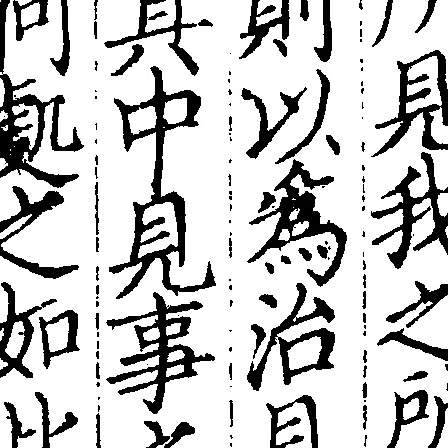 所見我之所
則以為治具
其中見事者
何處之如此